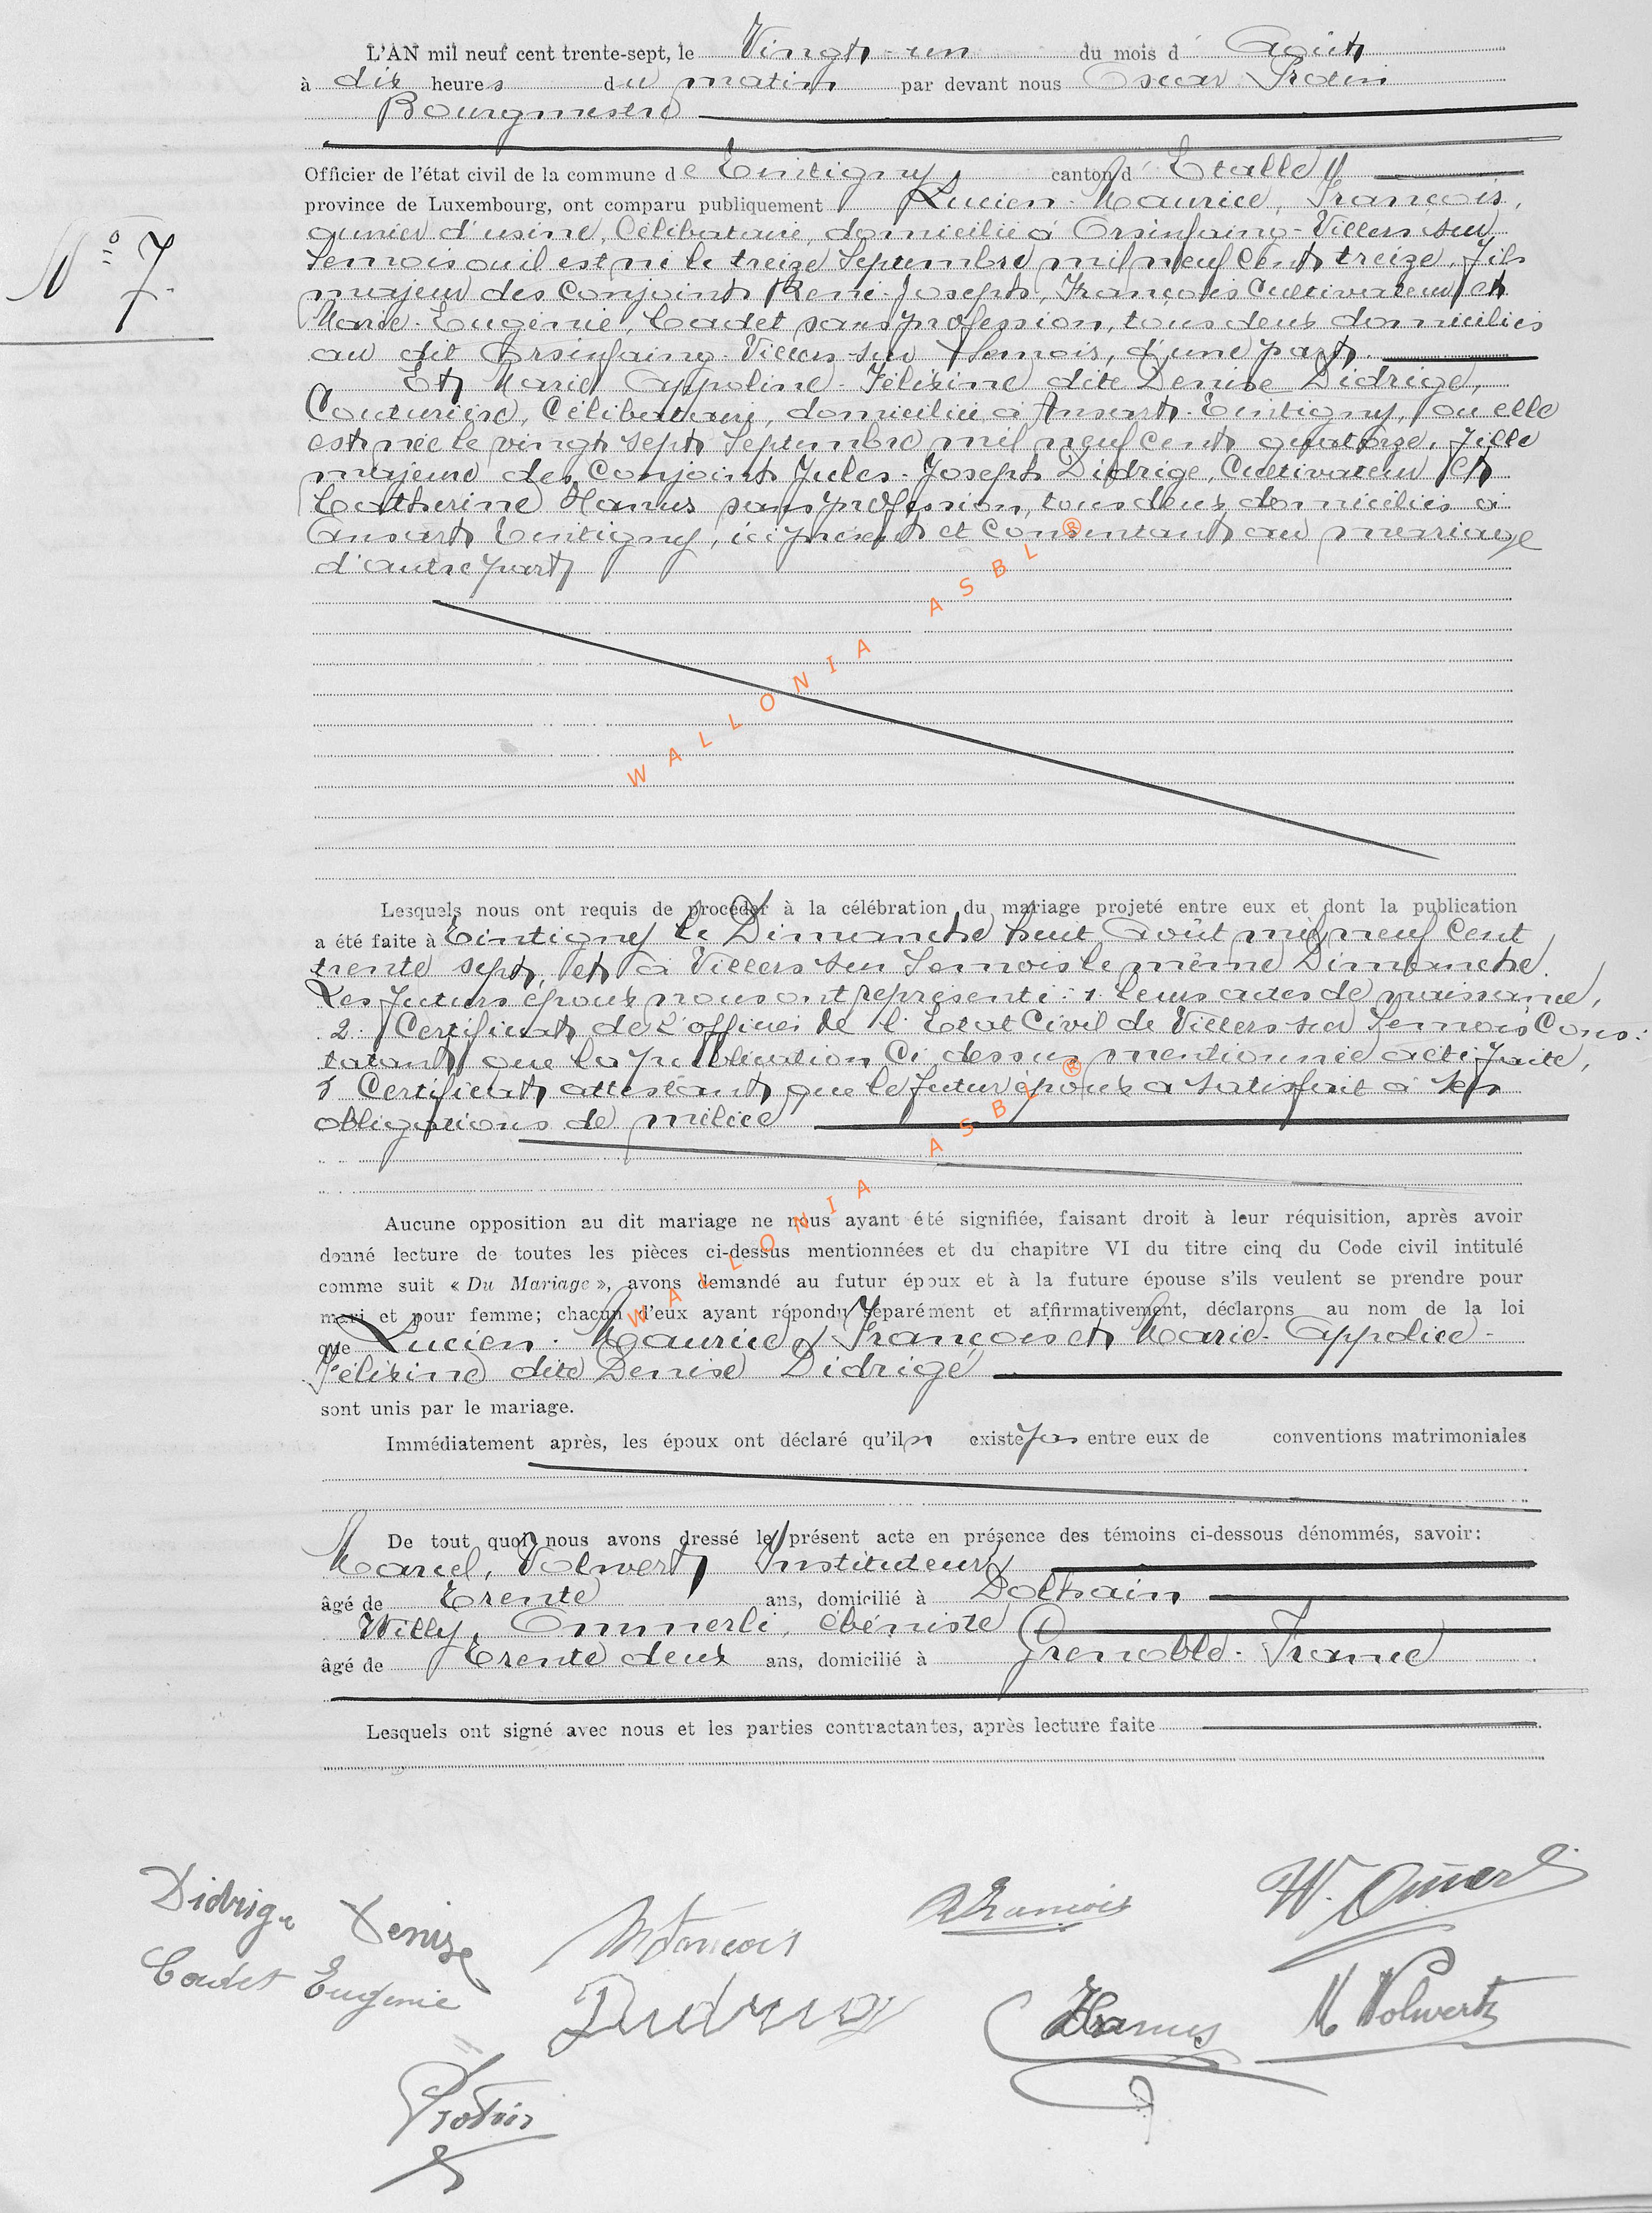 L'AN mil neuf cent trente-sept, le Vingt-un du mois d'Août
à dix heures du matin par devant nous Oscar
Bourgmestre
Officier de l'état civil de la commune de Tintigny canton d'Etalle
province de Luxembourg, ont comparu publiquement Lucien-Maurice, François,
ouvrier d'usine, Célibataire, domicilié à Orsinfaing-Villers sur
Semois où il est né le treize Septembre mil neuf Cent treize, fils
majeur des Conjoints René-Joseph, François Cultivateur et
Marie-Eugénie, Cadet sans profession, tous deux domiciliés
au dit Orsinfaing-Villers-sur Semois, d'une part.
Et Marie Appoline-Félixine dite Denise Didrige,
Couturière, Célibataire, domiciliée à Ansart-Tintigny, où elle
est née le vingt sept Septembre mil neuf cent quatorze, fille
majeure des Conjoints Jules-Joseph Didrige, Cultivateur et
Catherine Hamus sans profession, tous deux domiciliés à
Ansart Tintigny, ici présents et consentants au marriage
d'autre part
Nº 7.
WALLONIA ASBL ®
Lesquels nous ont requis de procéder à la célébration du mariage projeté entre eux et dont la publication
a été faite à Tintigny le Dimanche huit Août mil neuf Cent
trente sept, et à Villers sur Semois le même Dimanche.
Les futurs époux nous ont représenté: 1. leurs actes de naissance,
2. Certificat de l'officier de l'Etat Civil de Villers sur Semois Cons:
tatant que la publication Ci dessus mentionnée a été faite,
3 Certificat attestant que le futur époux a satisfait à ses
obligations de milice
WALLONIA ASBL ®
Aucune opposition au dit mariage ne nous ayant été signifiée, faisant droit à leur réquisition, après avoir
donné lecture de toutes les pièces ci-dessus mentionnées et du chapitre VI du titre cinq du Code civil intitulé
comme suit « Du Mariage », avons demandé au futur époux et à la future épouse s'ils veulent se prendre pour
mari et pour femme; chacun d'eux ayant répondu séparément et affirmativement, déclarons au nom de la loi
que Lucien-Maurice, François et Marie-Appolice-
Félixine dite Denise Didrige
sont unis par le mariage.
Immédiatement après, les époux ont déclaré qu'il n'existe pas entre eux de conventions matrimoniales
De tout quoi nous avons dressé le présent acte en présence des témoins ci-dessous dénommés, savoir:
Marcel, Volwertz Instituteur
âgé de Trente ans, domicilié à Dolhain
Willy, Ommerli, ébéniste
âgé de Trente deux ans, domicilié à Grenoble-France
Lesquels ont signé avec nous et les parties contractantes, après lecture faite
Didrige Denise
M François
R François
W. Omerli
Cadet Eugénie
Didrige
Hamus
M Volwertz